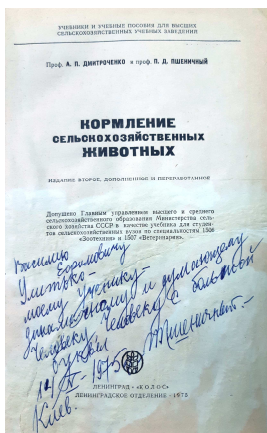 УЧЕБНИКИ И УЧЕБНЫЕ ПОСОБИЯ ДЛЯ ВЫСШИХ
СЕЛЬСКОХОЗЯЙСТВЕННЫХ УЧЕБНЫХ ЗАВЕДЕНИЙ
Проф. А. П. ДМИТРОЧЕНКО и проф. П. Д. ПШЕНИЧНЫЙ
КОРМЛЕНИЕ
СЕЛЬСКОХОЗЯЙСТВЕННЫХ
ЖИВОТНЫХ
ИЗДАНИЕ ВТОРОЕ, ДОПОЛНЕННОЕ И ПЕРЕРАБОТАННОЕ
Допущено Главным управлением высшего и среднего
сельскохозяйственного образования Министерства сель-
ского хозяйства СССР в качестве учебника для студен-
тов сельскохозяйственных вузов по специальностям 1506
«Зоотехния» и 1507 «Ветеринария»
Василию Ефремовичу
Улитько -
моему ученику -
думающему
Человеку Человеку с большой
буквы
14 1975 Пшеничный. -
Киев.
ЛЕНИНГРАД «КОЛОС»
ЛЕНИНГРАДСКОЕ ОТДЕЛЕНИЕ 1975